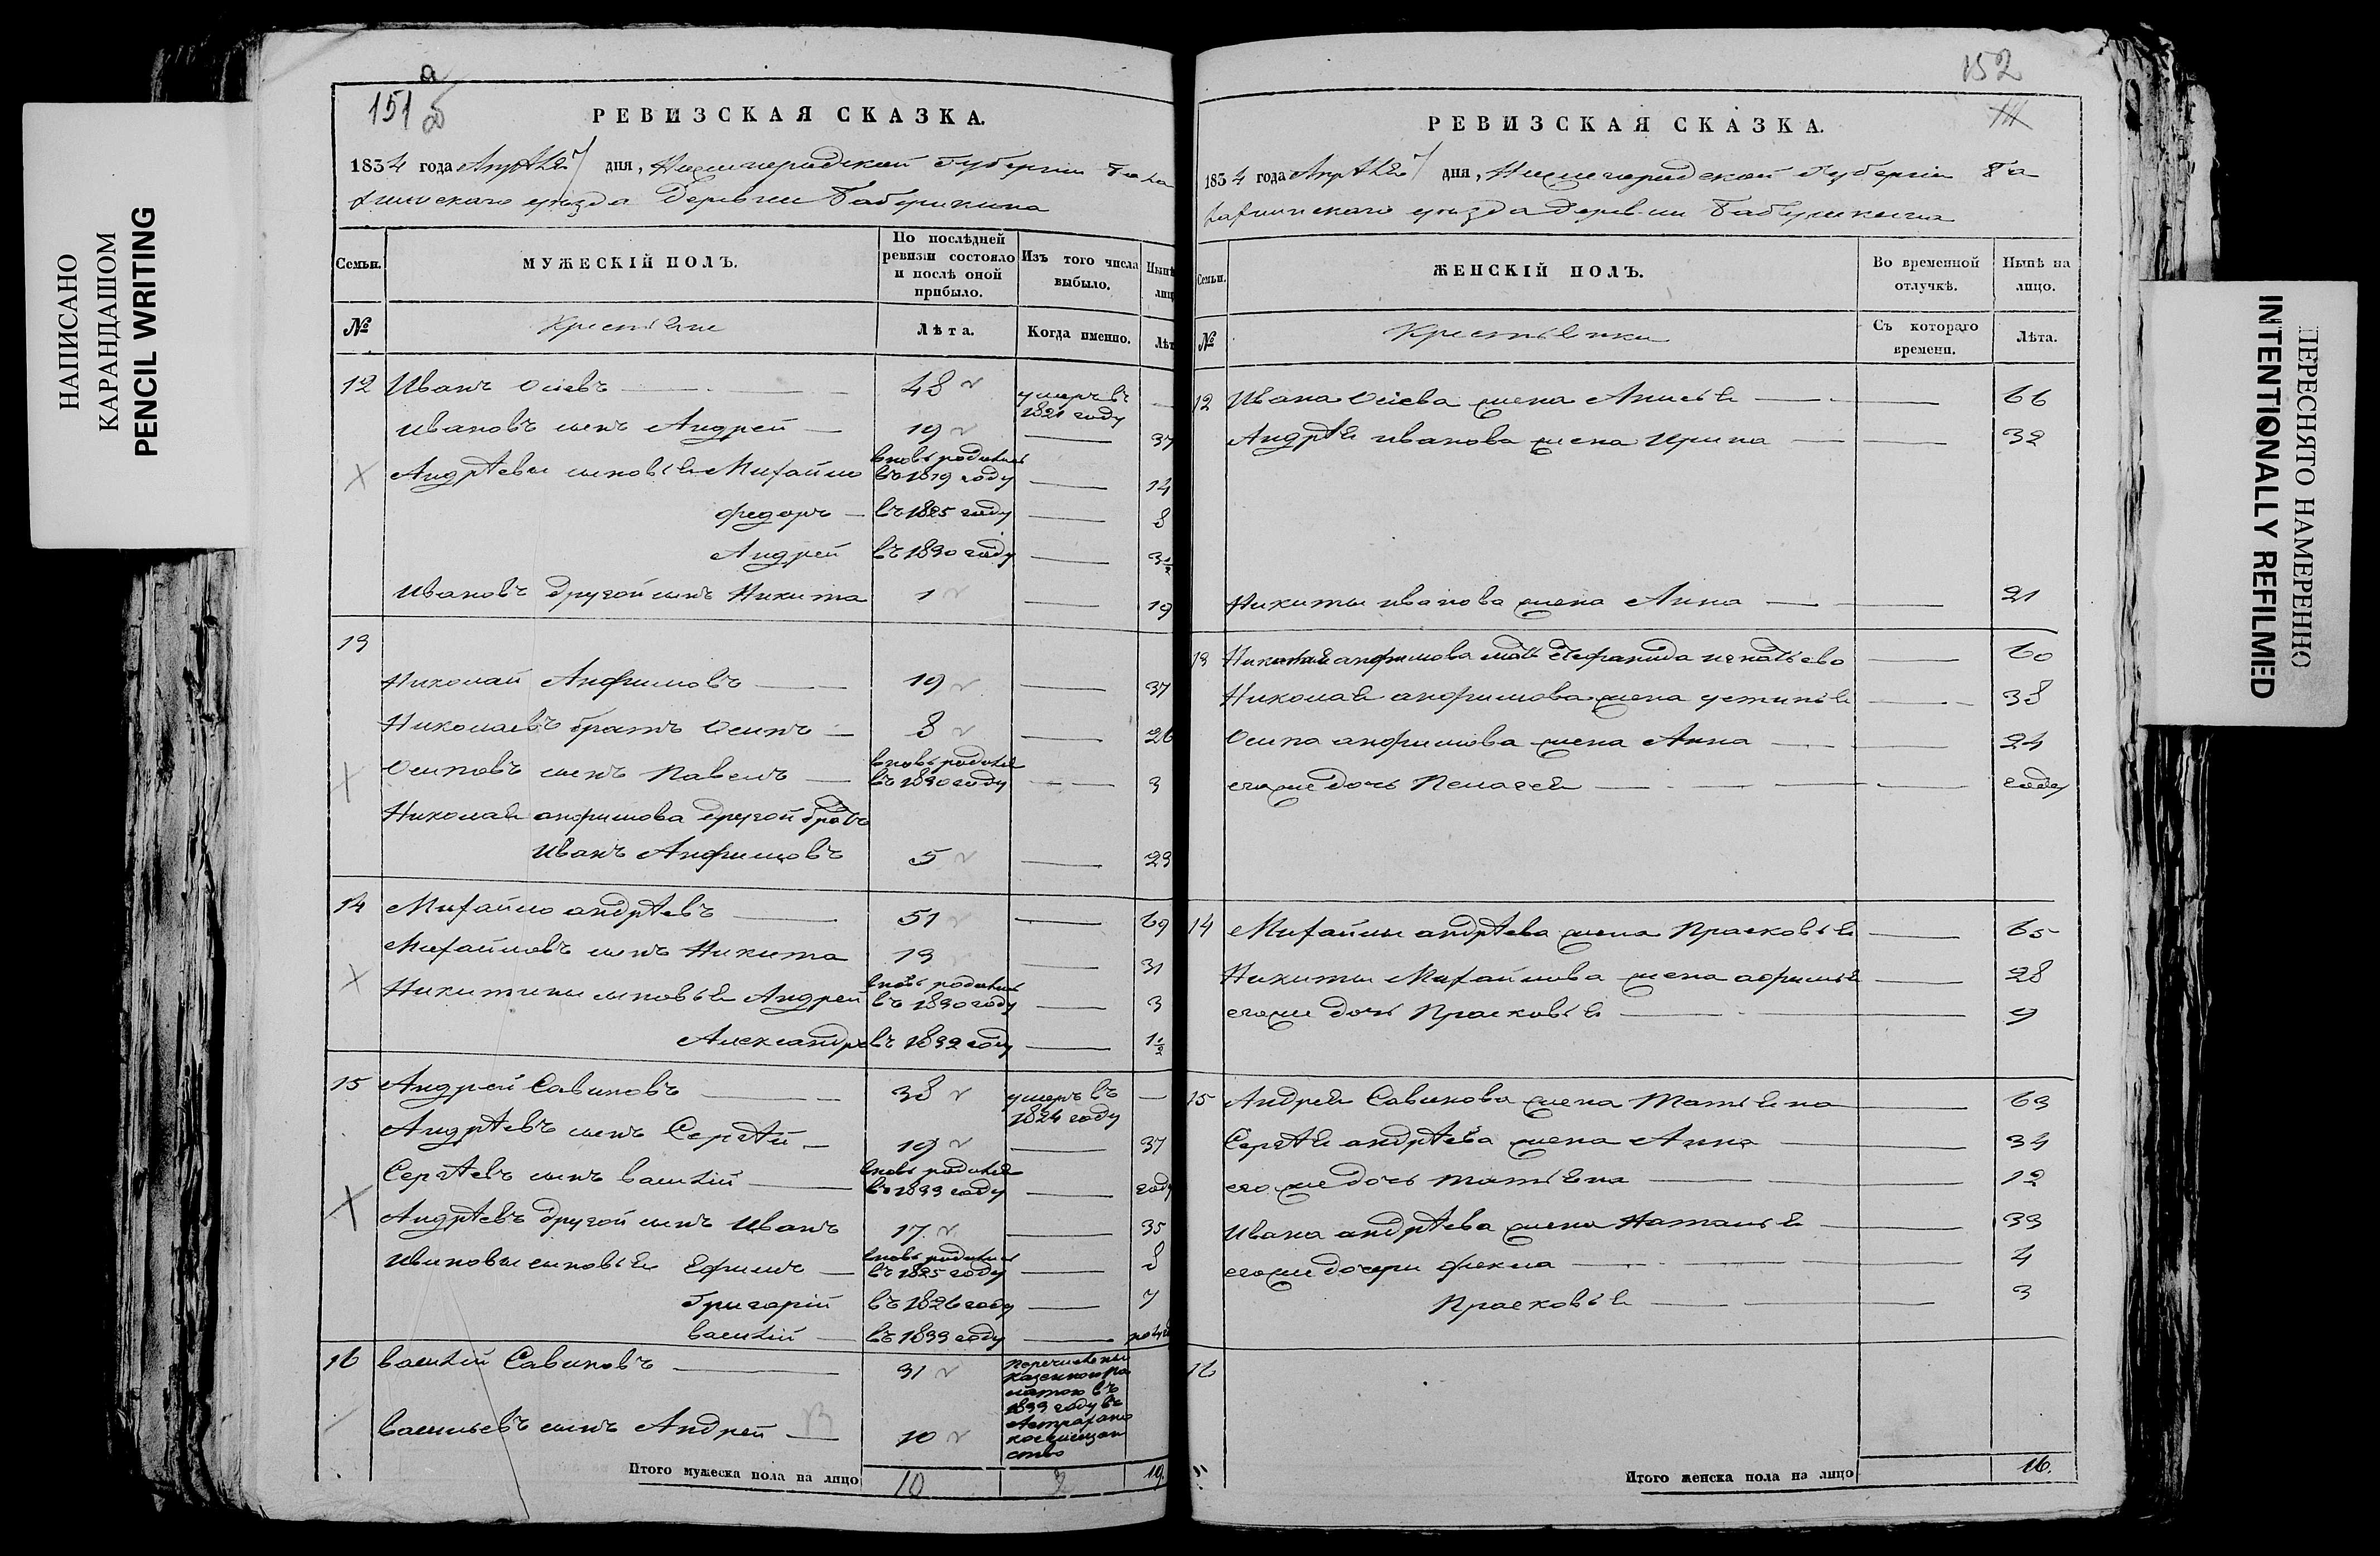 НАПИСАНО
КАРАНДАШОМ
PENCIL WRITING
а
151 б
РЕВИЗСКАЯ СКАЗКА.
1834 года Апрѣля 7 дня, Нижегородской Губернии Бала
хнинскаго уѣзда Деревни Бабушкина
Семьи.
МУЖЕСКІЙ ПОЛЪ.
По послѣдней ревизіи состояло и послѣ оной прибыло.
Изъ того числа выбыло.
Нынѣ
лиц
№
Крестьяне
Лѣта.
Когда именно.
Лѣт
12 Иванъ Осіевъ 48 умеръ въ 1821 году
Ивановъ сынъ Андрей 19 37
Андрѣевы сыновья Михайло вновь родились въ 1819 году 14
Федоръ въ 1825 году 8
Андрей въ 1830 году 3 1/2
Ивановъ другой сынъ Никита 1 19
13
Николай Анфимовъ 19 37
Николаевъ братъ Осипъ 8 26
Осиповъ сынъ Павелъ вновь родился въ 1830 году 3
Николая анфимова другой братъ
Иванъ Анфимовъ 5 23
14 Михайло андрѣевъ 51 69
Михайловъ сынъ Никита 13 31
Никитины сыновья Андрей вновь родились въ 1830 году 3
Александръ въ 1832 году 1 1/2
15 Андрей Савиновъ 38 умеръ въ 1826 году
Андрѣевъ сынъ Сергѣй 19 37
Сергѣевъ сынъ василій вновь родился въ 1833 году году
Андрѣевъ другой сынъ Иванъ 17 35
Ивановы сыновья Ефимъ вновь родились въ 1825 году 8
Григорій въ 1826 году 7
василій въ 1833 году полуго
16 василій Савиновъ 31 перечислены казенною па латою въ 1833 году въ Астрахано кое мещан ство
васильевъ сынъ Андрей 10
Итого мужеска пола на лицо 10 2 19.
152
РЕВИЗСКАЯ СКАЗКА.
1834 года Апрѣля 7 дня, Нижегородской Губерніи Ба
лахнинскаго уѣзда деревни Бабушкина
Семьи.
ЖЕНСКІЙ ПОЛЪ.
Во временной отлучкѣ.
Нынѣ на лицо.
№
Крестьянки
Съ котораго времени.
Лѣта.
12 Ивана Осіева жена Анисья 66
Андрѣя иванова жена Ирина 32
Никиты иванова жена Анна 21
13 Николая анфимова мать Стефанида игнатьева 60
Николая анфимова жена устинья 38
Осипа анфимова жена Анна 24
егоже дочь Пелагея году
14 Михайлы андрѣева жена Прасковья 65
Никиты Михайлова жена афимья 28
егоже дочь Прасковья 9
15 Андрея Савинова жена Татьяна 63
Сергѣя андрѣева жена Анна 34
егоже дочь татьяна 12
Ивана андрѣева жена Наталья 33
егоже дочери фекла 4
Прасковья 3
16
Итого женска пола на лицо 16.
ПЕРЕСНЯТО НАМЕРЕННО
INTENTIONALLY REFILMED